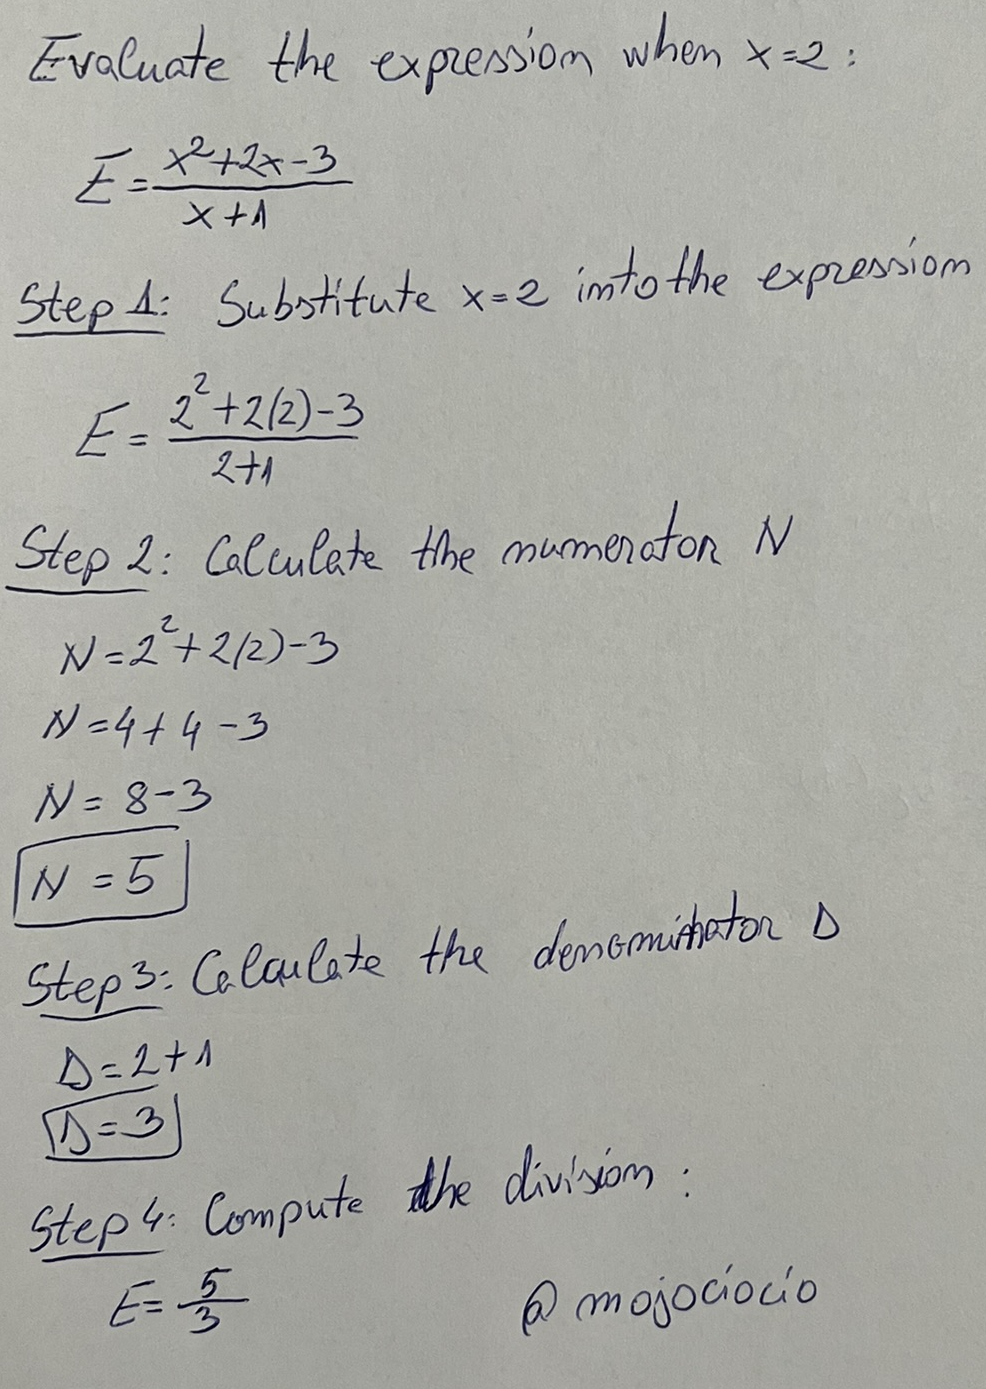 Evaluate the expression when x=2:
E = (x²+2x-3)/(x+1)
Step 1: Substitute x=2 into the expression
E = (2²+2(2)-3)/(2+1)
Step 2: Calculate the numerator N
N=2²+2(2)-3
N=4+4-3
N=8-3
N=5
Step 3: Calculate the denominator D
D=2+1
D=3
Step 4: Compute the division:
E=5/3
@mojociocio